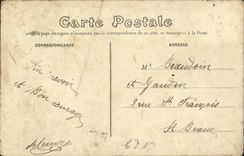 Carte Postale
Tous les pays étrangers n'acceptent pas la correspondance de ce côté, se renseigner à la Poste
CORRESPONDANCE
ADRESSE
Au revoir
et Bon
Mr Beaudoin
et Gaudon
3 rue St François
St Brieuc
C.d.N